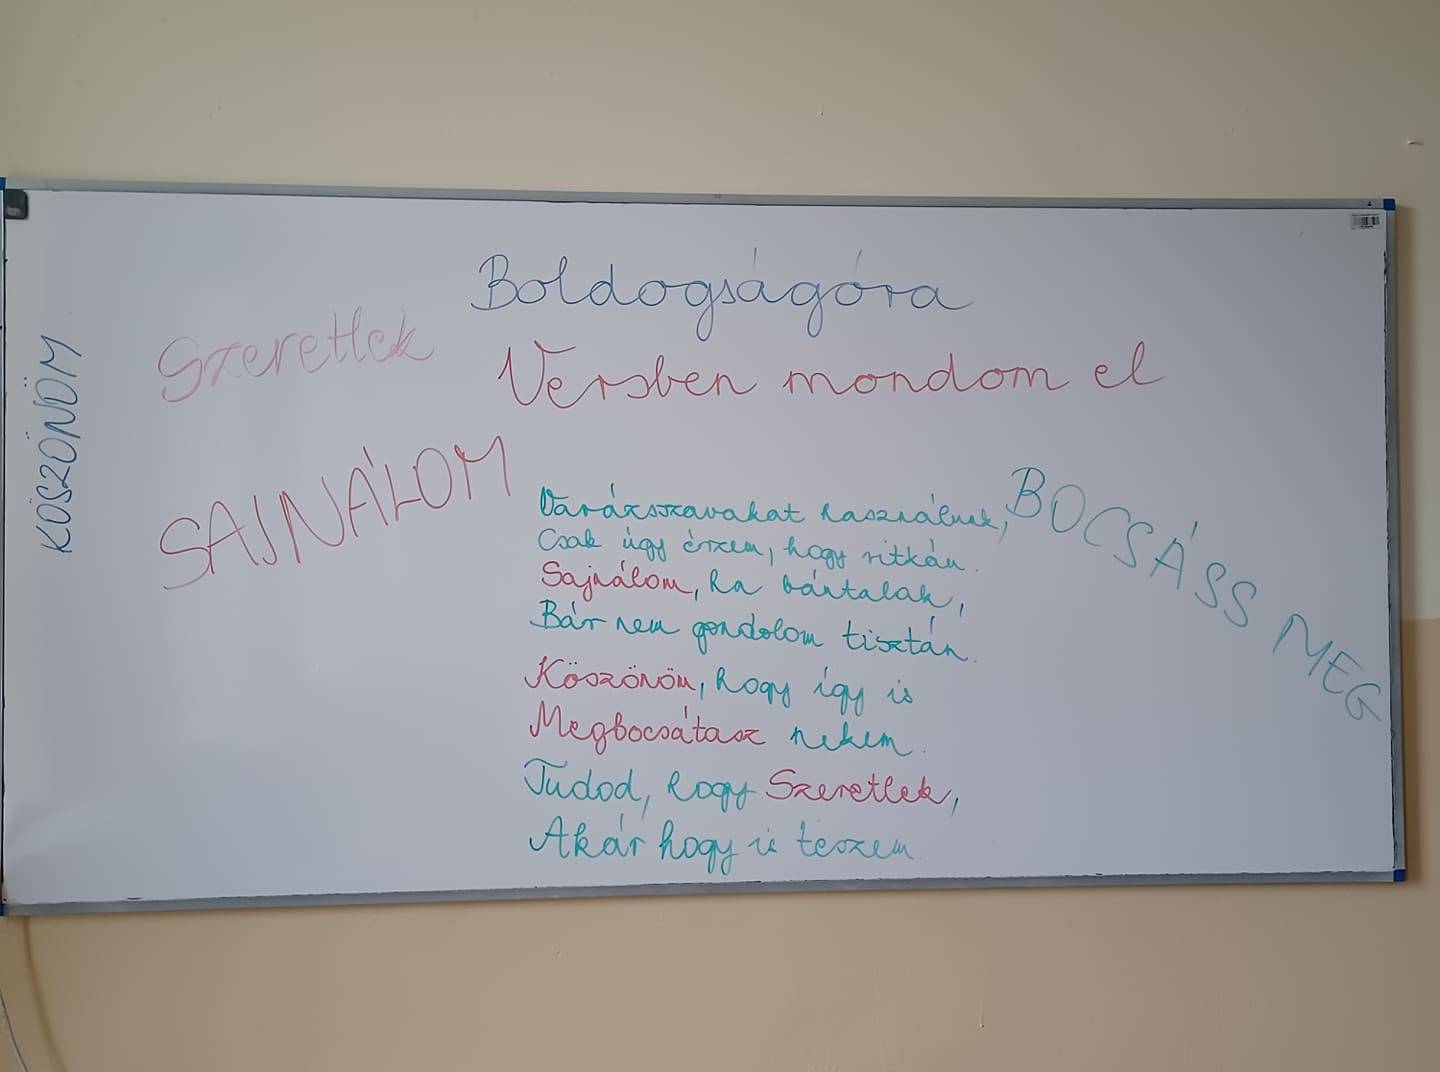 Boldogságóra
Szeretlek
Versben mondom el
KÖSZÖNÖM
SAJNÁLOM
BOCSÁSS MEG
Varázsszavakat használunk,
Csak úgy érzem, hogy ritkán.
Sajnálom, ha bántalak,
Bár nem gondolom tisztán.
Köszönöm, hogy így is
Megbocsátasz nekem.
Tudod, hogy Szeretlek,
Akár hogy is teszem